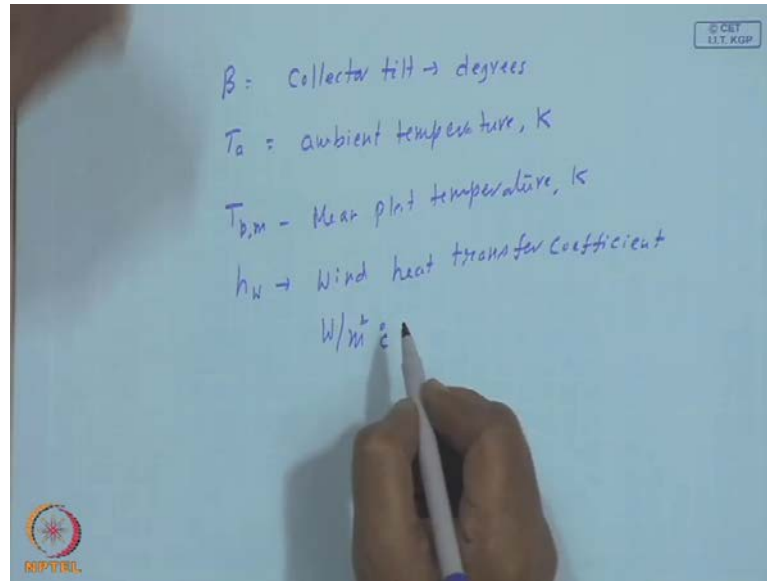 © CET
I.I.T. KGP
β = Collector tilt → degrees
Ta = ambient temperature, K
Tp,m - Mean plat temperature, K
hw → Wind heat transfer coefficient
W/m² °c
NPTEL